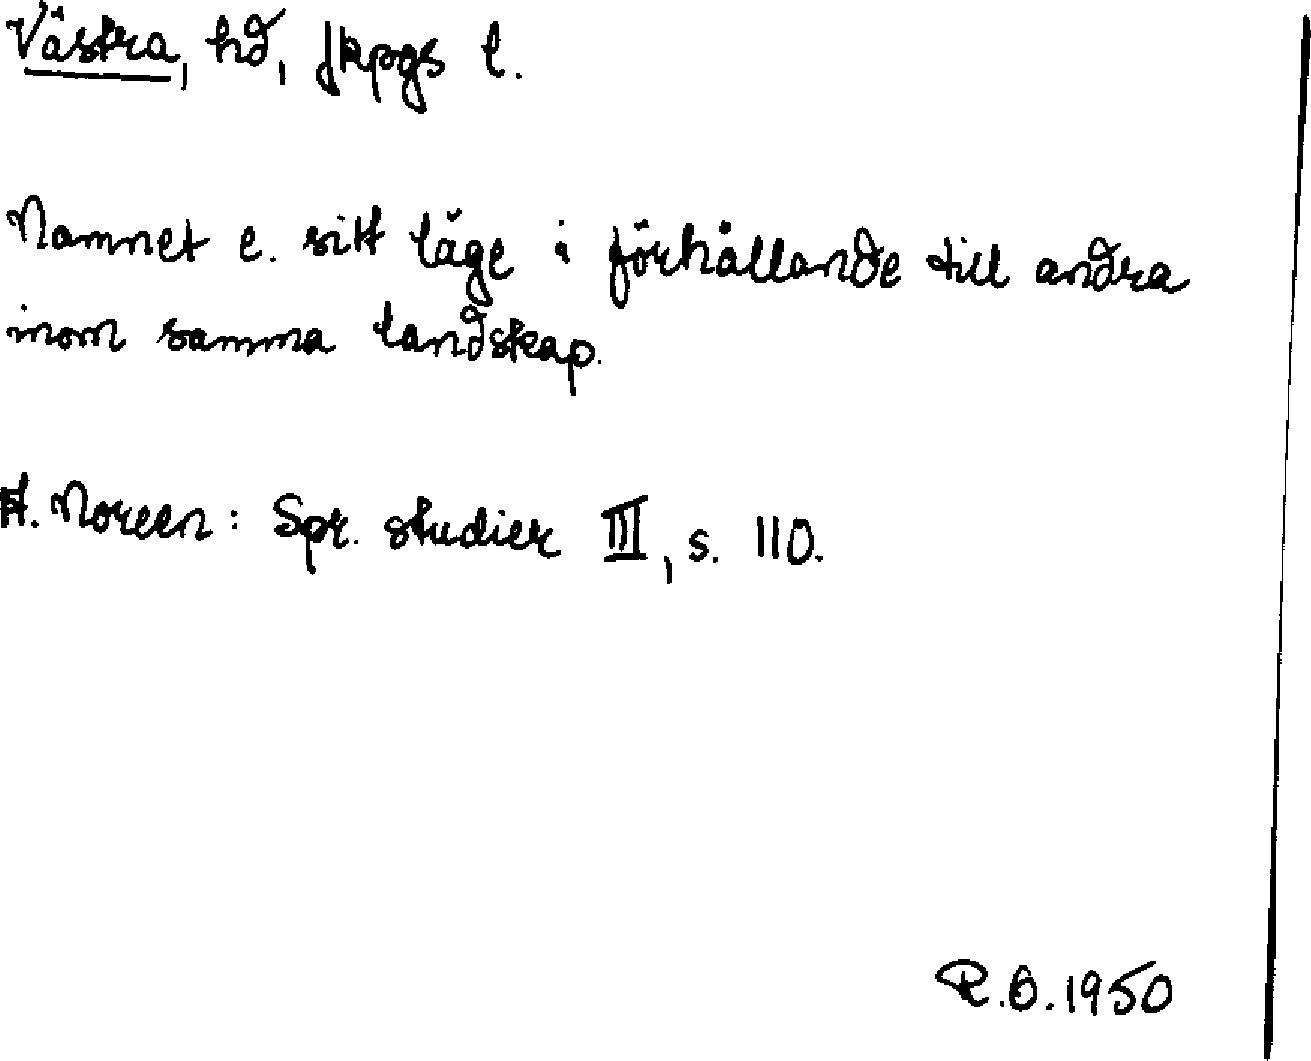 Västra, hd, Jkpgs l.
Namnet e. sitt läge i förhållande till andra
inom samma landskap.
A. Noreen: Spr. studier III, s. 110.
R.Ö.1950